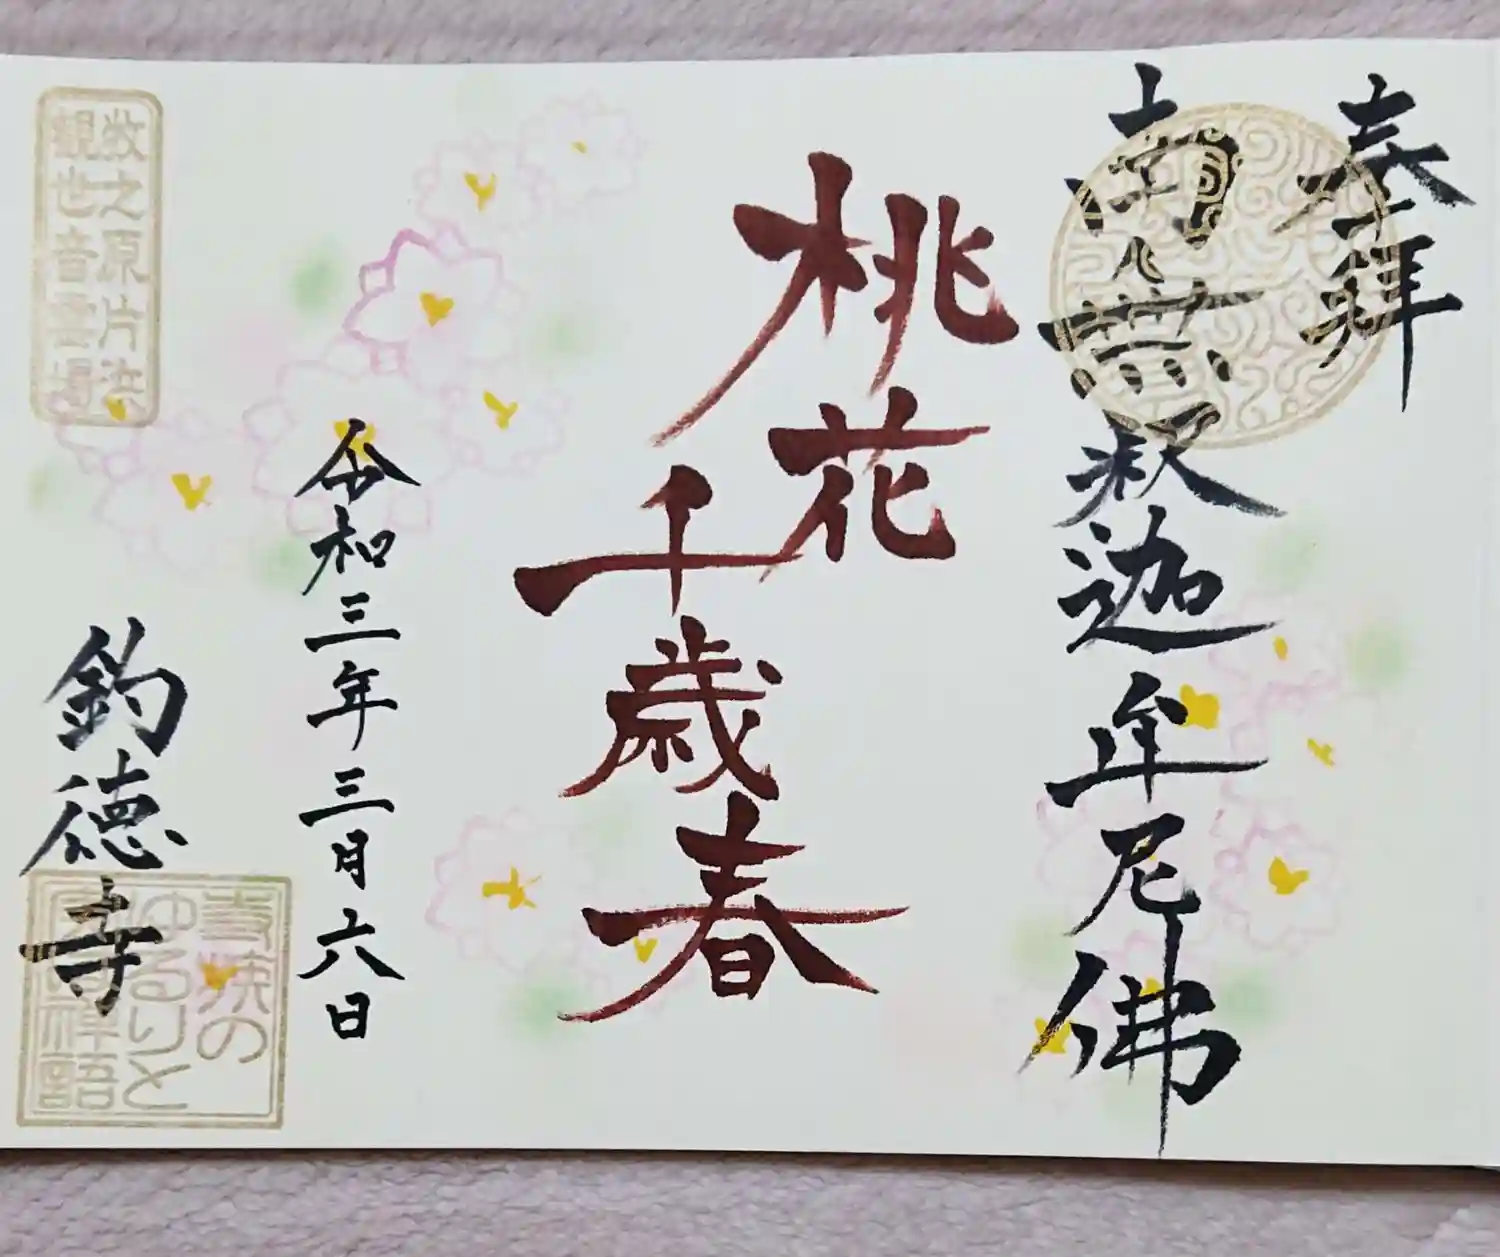 奉拝
南無釈迦牟尼佛
桃花
千歳春
令和三年三月六日
釣徳寺
牧之原片浜
観世音霊場
の
ゆるりと
禅語